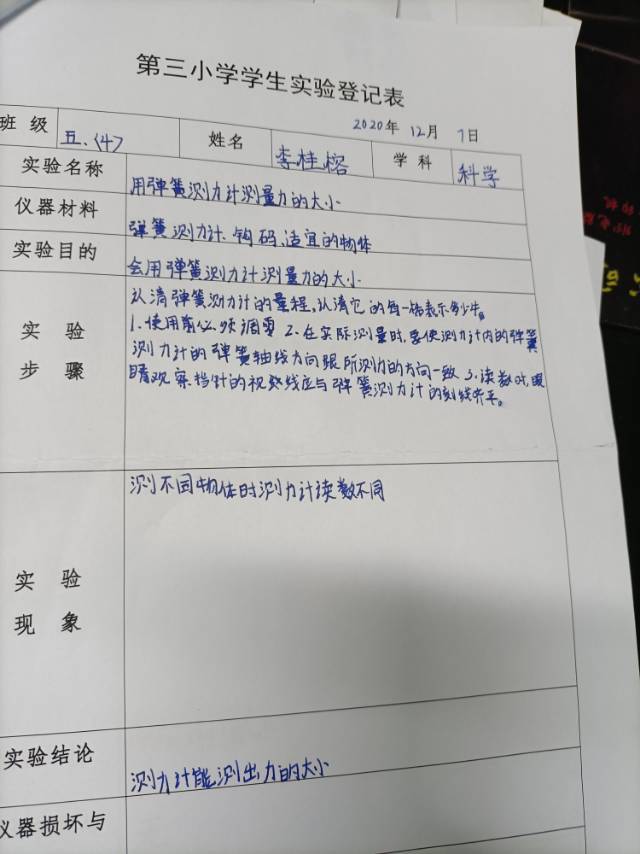 第三小学学生实验登记表
2020年 12月 7日
班 级 五、(4) 姓名 李桂榕 学 科 科学
实验名称 用弹簧测力计测量力的大小
仪器材料 弹簧测力计、钩码、适宜的物体
实验目的 会用弹簧测力计测量力的大小
实 验
步 骤
认清弹簧测力计的量程,认清它的每一格表示多少牛。
1.使用前必须调零 2.在实际测量时,要使测力计内的弹簧
测力计的弹簧轴线方向跟所测力的方向一致 3.读数时,眼
睛观察指针的视线应与弹簧测力计的刻线齐平。
实 验
现 象
测不同物体时测力计读数不同
实验结论 测力计能测出力的大小
仪器损坏与